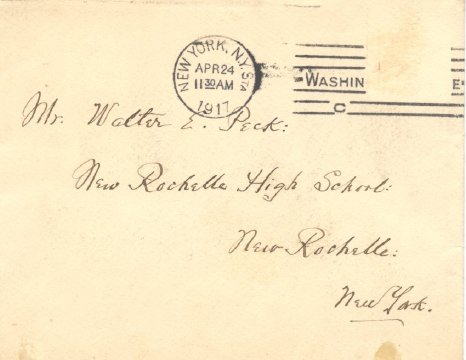 NEW YORK, N.Y. STA
APR 24
11 30 AM
1917
WASHIN E
C
Mr. Walter E. Peck:
New Rochelle High School:
New Rochelle:
New York.